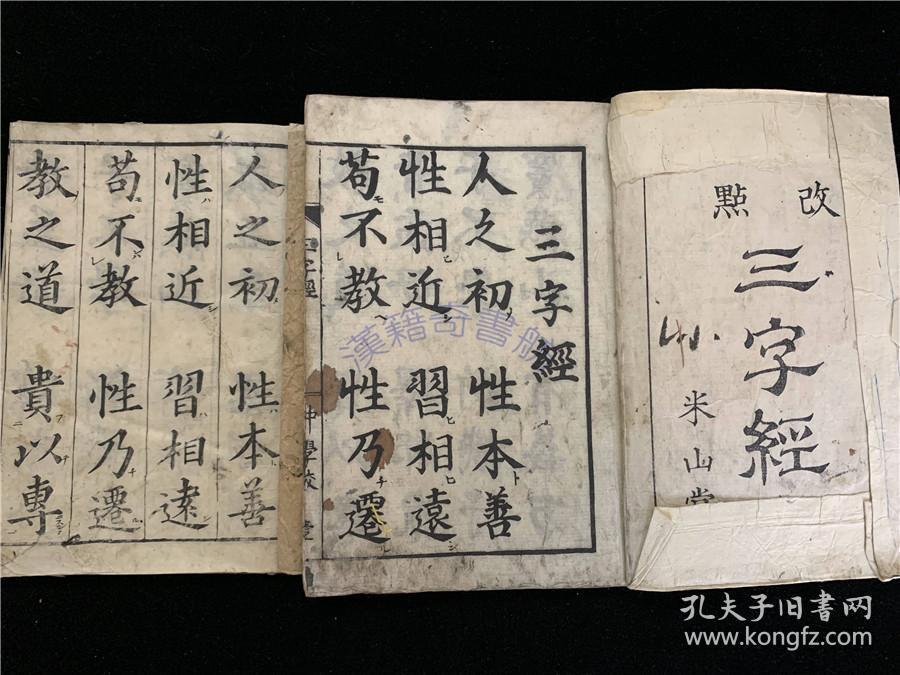 改點
三字經
米山堂
三字經
人之初 性本善
性相近 習相遠
苟不教 性乃遷
三字經
中學校
壹
人之初 性本善
性相近 習相遠
苟不教 性乃遷
教之道 貴以專
漢籍奇書
孔夫子旧书网
www.kongfz.com